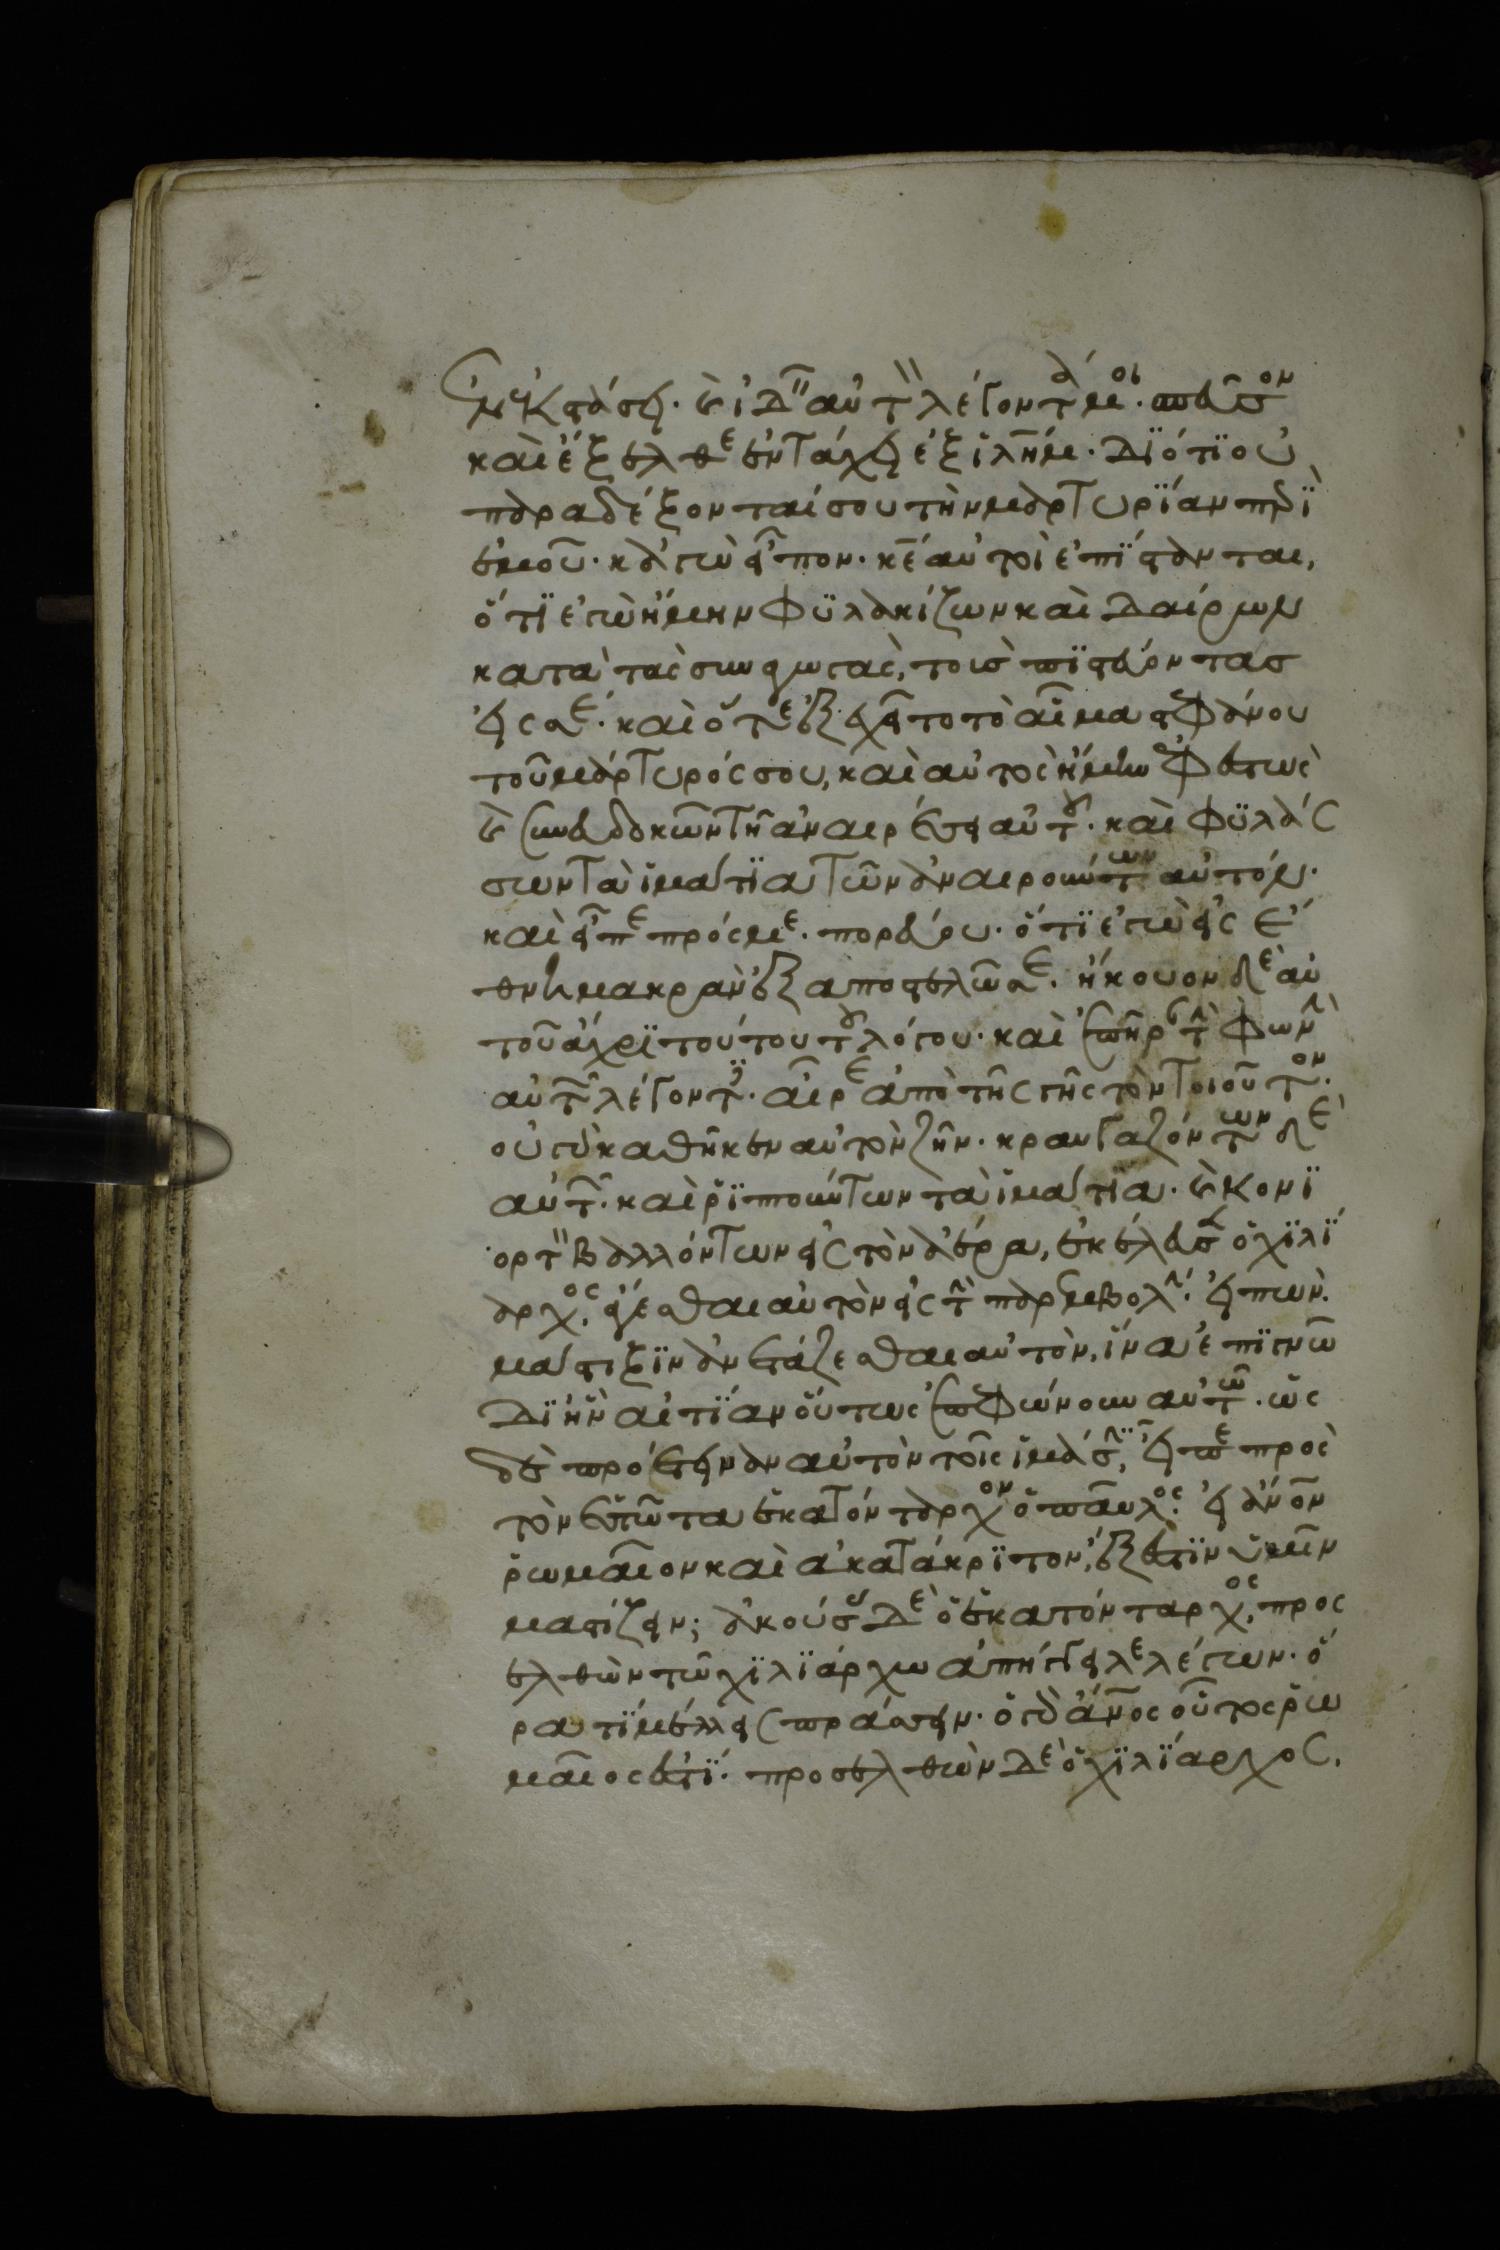 ἐν ἐκστάσει. καὶ ἰδεῖν αὐτὸν λέγοντά μοι. σπεῦσον
καὶ ἔξελθε ἐν τάχει ἐξ ἱλημ. διότι οὐ
παραδέξονταί σου τὴν μαρτυρίαν περὶ
ἐμοῦ. κἀγὼ εἶπον. κε αὐτοὶ ἐπίστανται,
ὅτι ἐγὼ ἤμην φυλακίζων καὶ δαίρων
κατὰ τὰς συναγωγὰς, τοὺς πιστεύοντας
εἰς σέ. καὶ ὅτε ἐξεχεῖτο τὸ αἷμα στεφάνου
τοῦ μάρτυρός σου, καὶ αὐτὸς ἤμην ἐφεστὼς
καὶ συνευδοκῶν τῆ ἀναιρέσει αὐτοῦ. καὶ φυλάσ
σων τὰ ἱμάτια τῶν ἀναιρούντων αὐτόν.
καὶ εἶπε πρός με. πορεύου. ὅτι ἐγὼ εἰς ἔ
θνη μακρὰν ἐξαποστελῶ σε. ἤκουον δὲ αὐ
τοῦ ἄχρι τούτου τοῦ λόγου. καὶ ἐπῆραν τὴν φωνὴν
αὐτῶν λέγοντες. αἶρε ἀπὸ τῆς γῆς τὸν τοιοῦτον.
οὐ γὰρ καθῆκεν αὐτὸν ζῆν. κραυγαζόντων δὲ
αὐτῶν. καὶ ῥιπτούντων τὰ ἱμάτια. καὶ κονι
ορτὸν βαλλόντων εἰς τὸν ἀέρα, ἐκέλευσεν ὁ χιλί
αρχος. ἄγεσθαι αὐτὸν εἰς τὴν παρεμβολήν. εἰπὼν.
μάστιξιν ἀνετάζεσθαι αὐτὸν, ἵνα ἐπιγνῶ
δι ἣν αἰτίαν οὕτως ἐπεφώνουν αὐτῶ. ὡς
δὲ προέτειναν αὐτὸν τοῖς ἱμᾶσιν, εἶπε πρὸς
τὸν ἑστῶτα ἑκατόνταρχον ὁ παῦλος. εἰ ἄνον
ῥωμαῖον καὶ ἀκατάκριτον, ἔξεστιν ὑμῖν
μαστίζειν; ἀκούσας δὲ ὁ ἑκατόνταρχος, προς
ελθὼν τῶ χιλιάρχω ἀπήγγειλε λέγων. ὅ
ρα τί μέλλεις πράσσειν. ὁ γὰρ ἄνος οὗτος ῥω
μαῖος ἐστί. προσελθὼν δὲ ὁ χιλίαρχος,